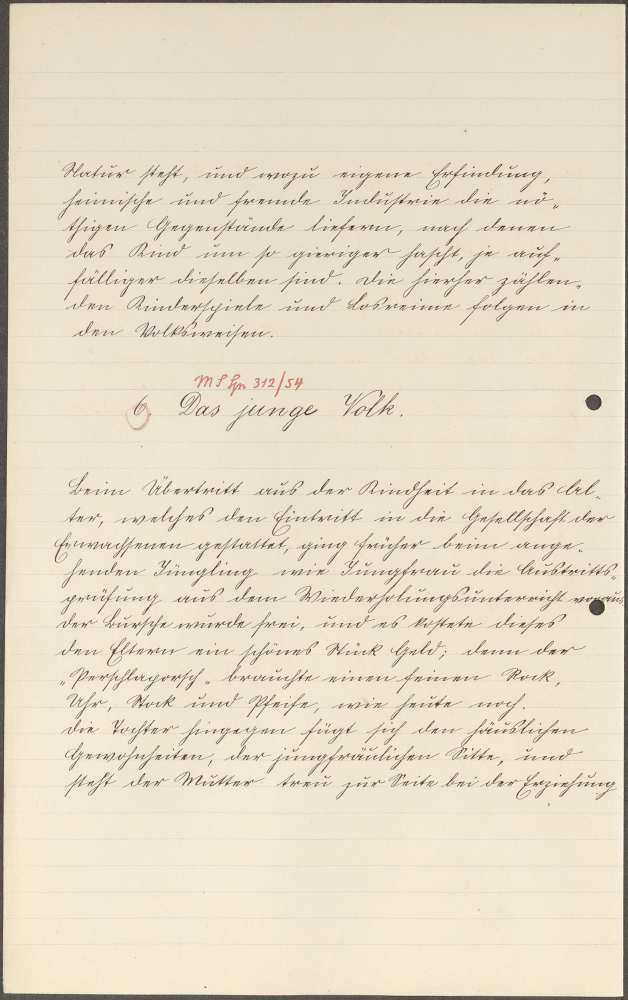 Natur steht, und wozu eigene Erfindung,
heimische und fremde Industrie die nö-
thigen Gegenstände liefern, nach denen
das Kind um so gieriger hascht, je auf-
fälliger dieselben sind. Die hierher zählen-
den Kinderspiele und Losreime folgen in
den Volksweisen.
MS Hr 312/54
6 Das junge Volk.
Beim Übertritt aus der Kindheit in das Al-
ter, welches den Eintritt in die Gesellschaft der
Erwachsenen gestattet, ging früher beim ange-
henden Jüngling wie Jungfrau die Austritts-
prüfung aus dem Wiederholungsunterricht voraus.
Der Bursche wurde frei, und es kostete dieses
den Eltern ein schönes Stück Geld; denn der
„Perschlaporsch“ brauchte einen feinen Rock,
Uhr, Stock und Pfeife, wie heute noch.
Die Tochter hingegen fügt sich den häuslichen
Gewohnheiten, der jungfräulichen Sitte, und
steht der Mutter treu zur Seite bei der Erziehung